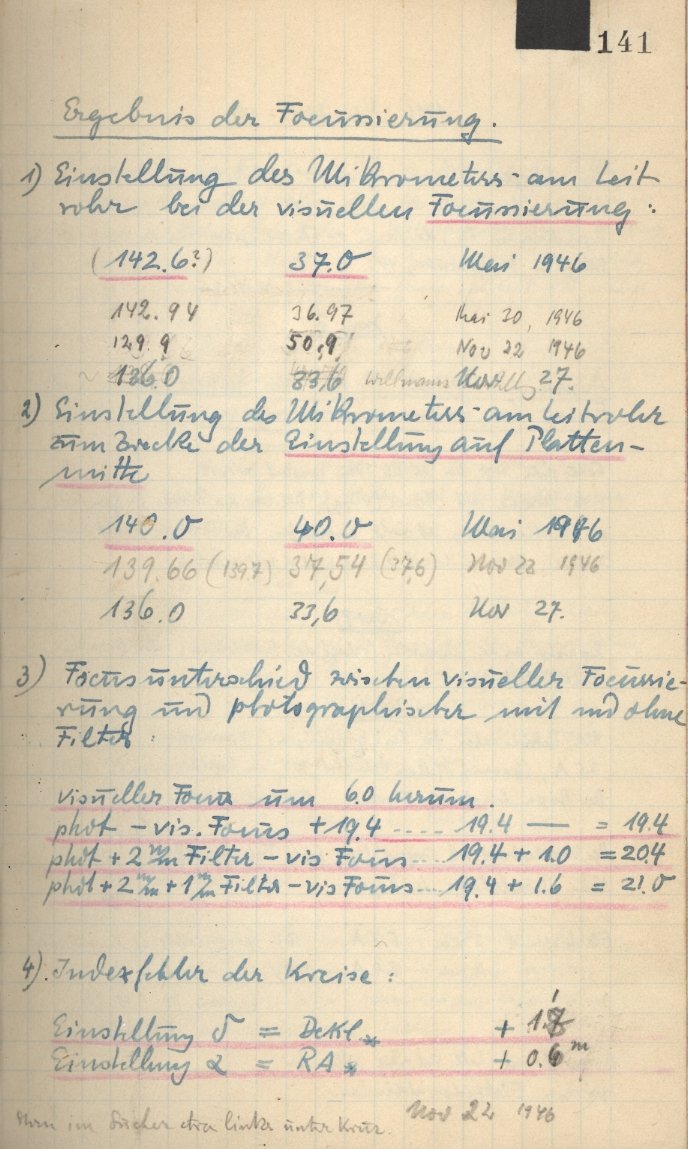 141
Ergebnis der Focussierung.
1) Einstellung des Mikrometers am Leit-
rohr bei der visuellen Focussierung:
(142.6?) 37.0 Mai 1946
142.94 36.97 Mai 20, 1946
129.9 50,9 Nov 22 1946
136.0 33,6 Nov 27.
2) Einstellung des Mikrometers am Leitrohr
zum Zwecke der Einstellung auf Platten-
mitte
140.0 40.0 Mai 1946
139.66 (139.7) 37,54 (37,6) Nov 22 1946
136.0 33,6 Nov 27.
3) Focusunterschied zwischen visueller Focussie-
rung und photographischer mit und ohne
Filter:
visueller Focus um 6.0 herum.
phot - vis. Focus +19.4 .... 19.4 — = 19.4
phot + 2 mm Filter - vis Focus ... 19.4 + 1.0 = 20.4
phot + 2 mm + 1 mm Filter - vis Focus ... 19.4 + 1.6 = 21.0
4). Indexfehler der Kreise:
Einstellung δ = Dekl * +
Einstellung α = RA * + 0.6 m
Nov 22 1946
Stern im Sucher etwa links unter Kreuz.